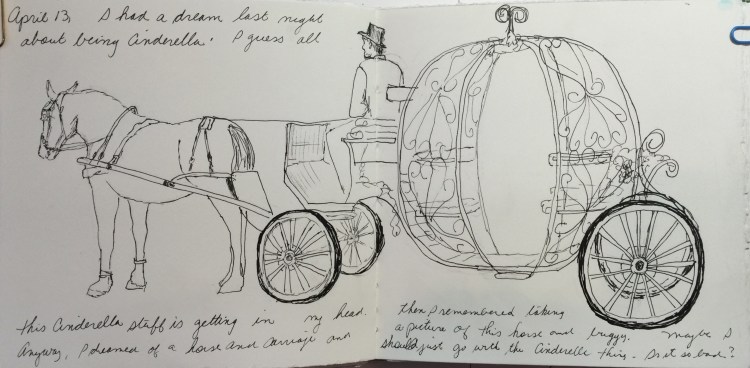 April 13, I had a dream last night
about being Cinderella. I guess all
this Cinderella stuff is getting in my head.
Anyway, I dreamed of a horse and carriage and
then I remembered taking
a picture of this horse and buggy. Maybe I
should just go with the Cinderella thing. Is it so bad?